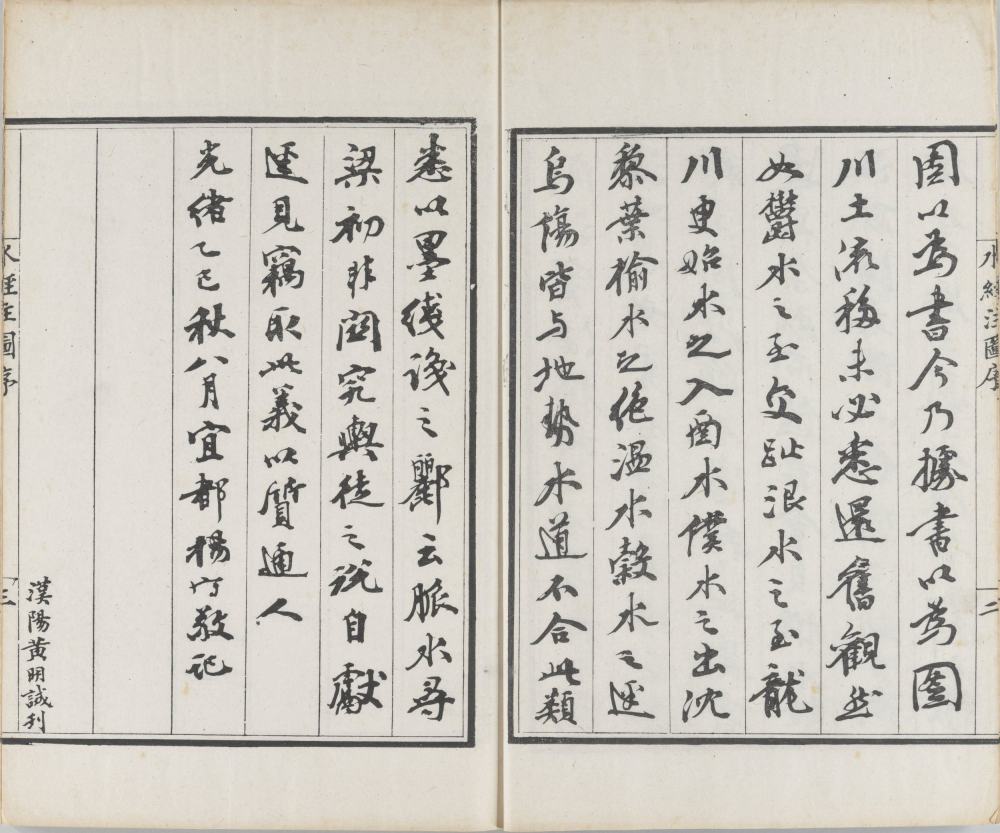 水經注圖序
二
圖以為書今乃據書以為圖
川土流移未必悉還舊觀然
如欝水之至交趾泿水之至龍
川更始水之入酉水僕水之出沈
黎葉榆水之絶溫水榖水之逕
烏傷皆与地勢水道不合此類
悉以墨綫識之酈云脈水尋
梁初非關究輿徒之說自獻
逕見竊取此義以質通人
光緒乙巳秋八月宜都楊守敬記
水經注圖序
三
漢陽黃明誠刊